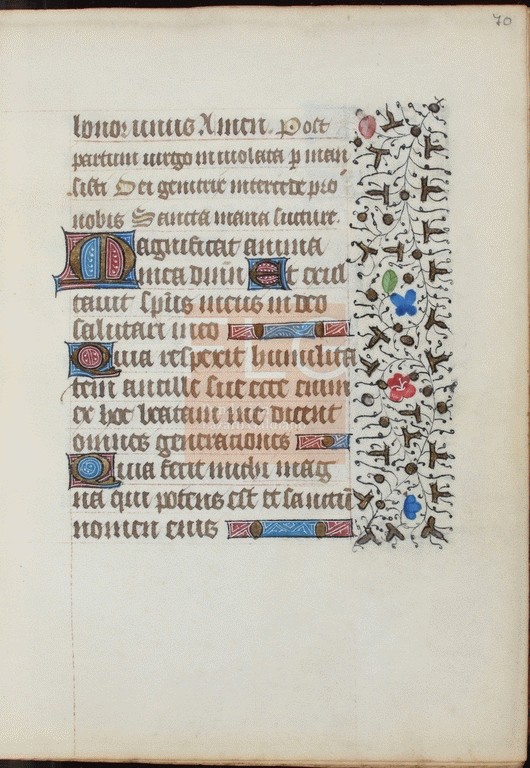 70
bonor unus Amen. Post
partum virgo inviolata p man
sisti Dei genitrix intercede pro
nobis Sancta maria succure.
Magnificat anima
mea dnm Et exul
tavit spus meus in deo
salutari meo
Quia respexit humilita
tem ancille sue ecce enim
ex hoc beatam me dicent
omnes generationes
Quia fecit michi mag
na qui potens est et sanctu
nomen eius